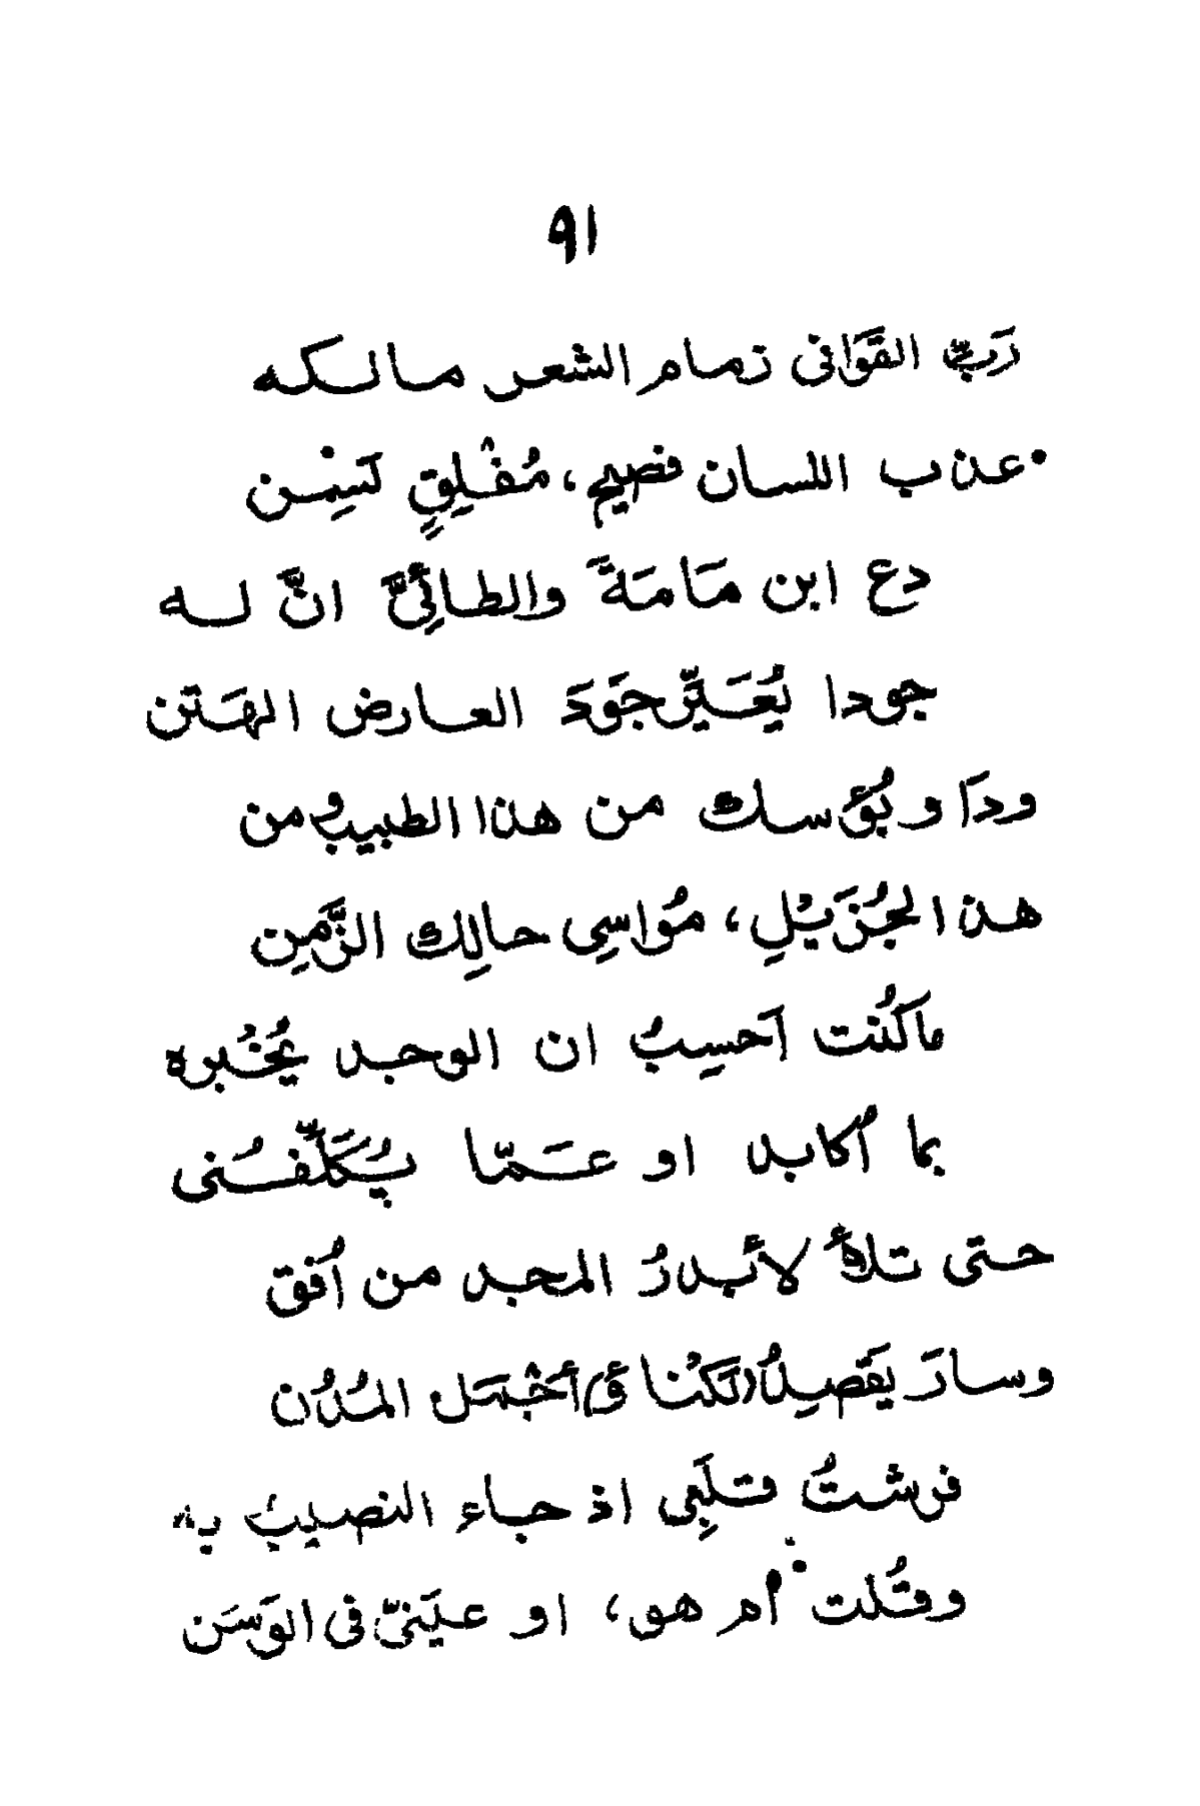 ٩١
رَبُّ القَوَافى زمام الشعر مالكه
عذب اللسان فصيح، مُفْلِقٍ لَسِن
دع ابن مَامَةَ والطائِىَّ انَّ له
جودا يُعَيِّر جَودَ العارض الهَتن
ودَاو بُؤسك من هذا الطبيبُ ومن
هذا الجُزَيْلِ، مُواسِى حالِك الزَّمِن
ما كُنْت اَحسِبُ ان الوجد يُخْبره
بما أكابد او عَمّا يُكَلِّفُنى
حتى تلألأ لأبدرُ المجد من أفق
وسارَ يَقصِدُ (لَكْنَا ؤ) أجْمَل المُدُن
فرشتُ قلبِى اذ جاء النصيبُ به
وقُلت أم هو، او عيَنىّ فى الوَسَن